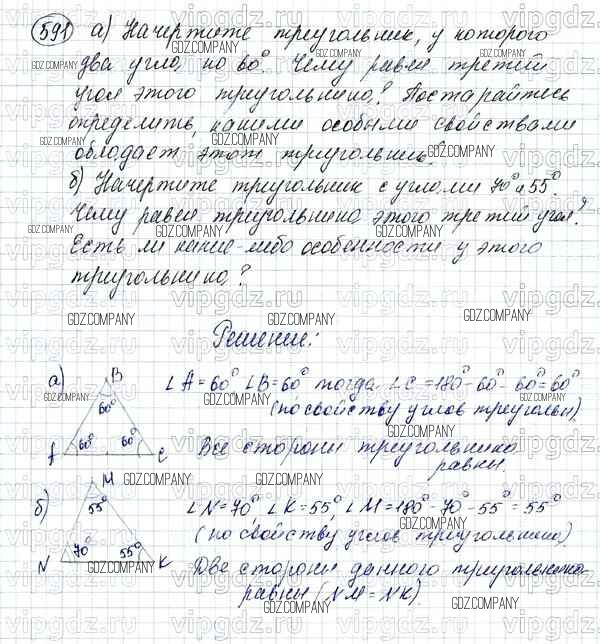 591 а) Начертите треугольник, у которого
два угла по 60°. Чему равен третий
угол этого треугольника? Постарайтесь
определить, какими особыми свойствами
обладает этот треугольник.
б) Начертите треугольник с углами 70° и 55°.
Чему равен треугольника этого третий угол?
Есть ли какие-либо особенности у этого
треугольника?
Решение:
а) B ∠A = 60° ∠B = 60° тогда ∠C = 180° - 60° - 60° = 60°
60° (по свойству углов треугольн)
60° 60° Все стороны треугольника
C равны.
б) M ∠N = 70°, ∠K = 55°, ∠M = 180° - 70° - 55° = 55°
55° (по свойству углов треугольника)
70° 55°
N K Две стороны данного треугольника
равны (NM = NK).
vipgdz.ru
GDZ.COMPANY